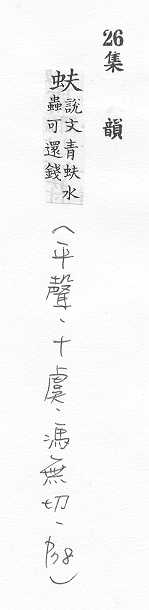 26集 韻
蚨說文青蚨水
蟲可還錢
(平聲、十虞、馮無切、p.78)